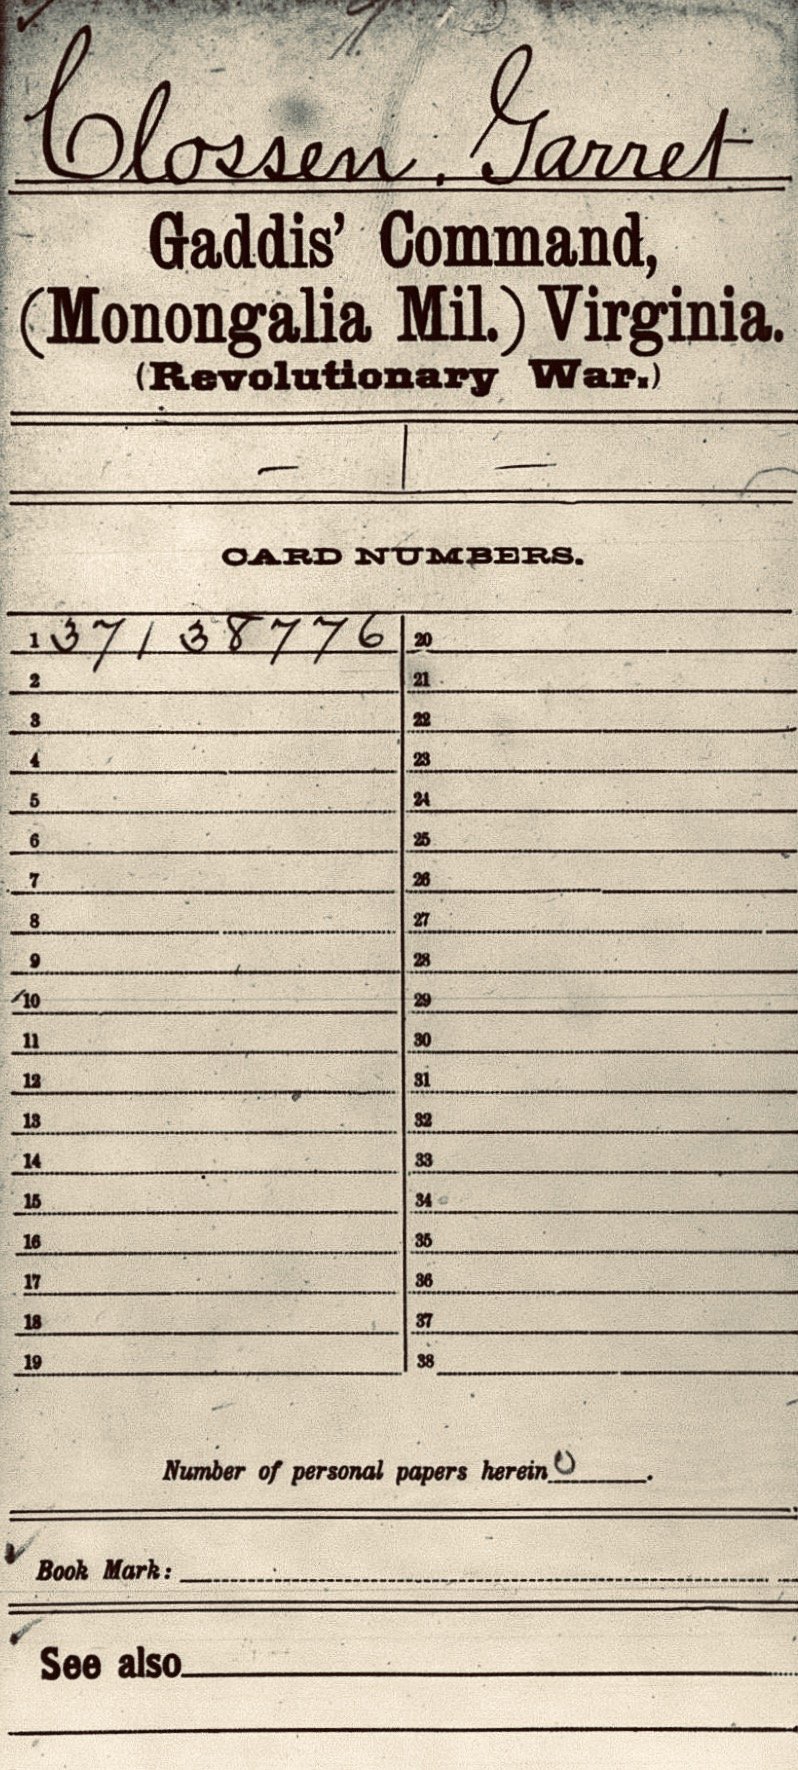 Clossen, Garret
Gaddis' Command,
(Monongalia Mil.) Virginia.
(Revolutionary War.)
— | —
CARD NUMBERS.
1 37138776
20
2
21
3
22
4
23
5
24
6
25
7
26
8
27
9
28
10
29
11
30
12
31
13
32
14
33
15
34
16
35
17
36
18
37
19
38
Number of personal papers herein 0.
Book Mark:
See also